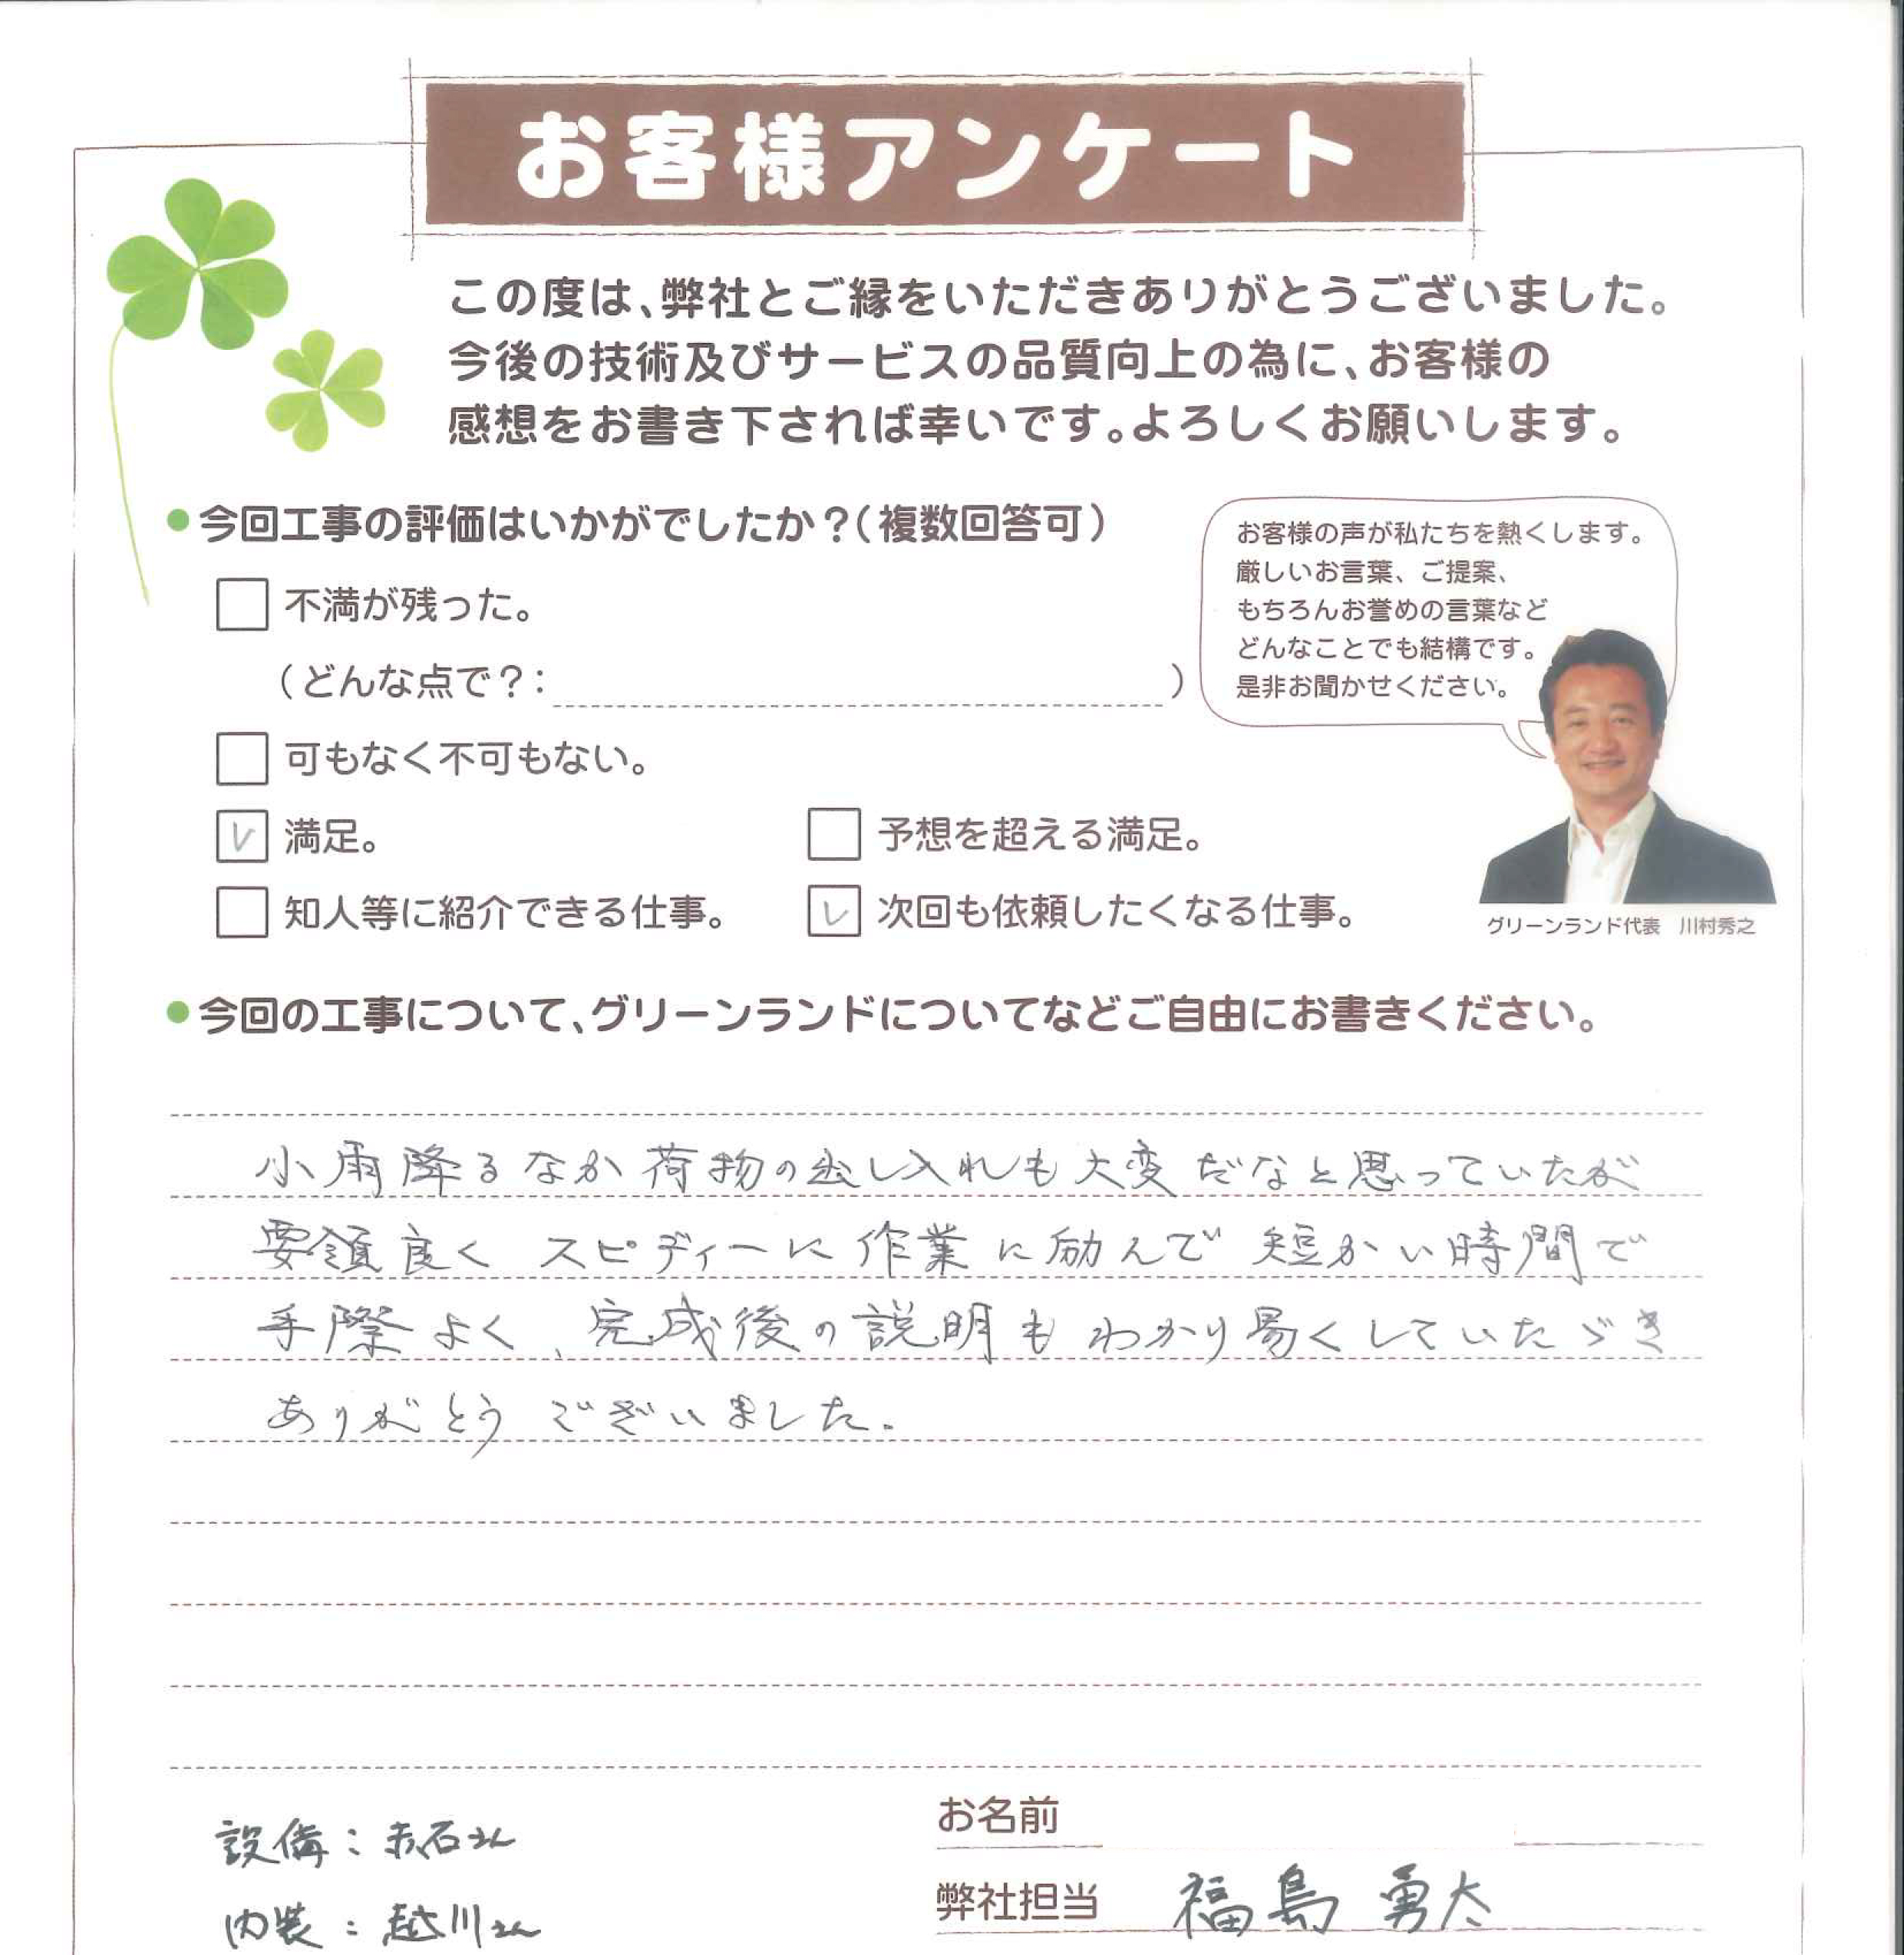 お客様アンケート
この度は、弊社とご縁をいただきありがとうございました。
今後の技術及びサービスの品質向上の為に、お客様の
感想をお書き下されば幸いです。よろしくお願いします。
●今回工事の評価はいかがでしたか？（複数回答可）
不満が残った。
（どんな点で？： ）
可もなく不可もない。
レ 満足。
予想を超える満足。
知人等に紹介できる仕事。
レ 次回も依頼したくなる仕事。
お客様の声が私たちを熱くします。
厳しいお言葉、ご提案、
もちろんお誉めの言葉など
どんなことでも結構です。
是非お聞かせください。
グリーンランド代表 川村秀之
●今回の工事について、グリーンランドについてなどご自由にお書きください。
小雨降るなか荷物の出し入れも大変だなと思っていたが
要領良く スピディーに作業に励んで 短かい時間で
手際よく、完成後の説明もわかり易くしていたゞき
ありがとうございました.
設備：赤石さん
内装：越川さん
お名前
弊社担当 福島 勇太